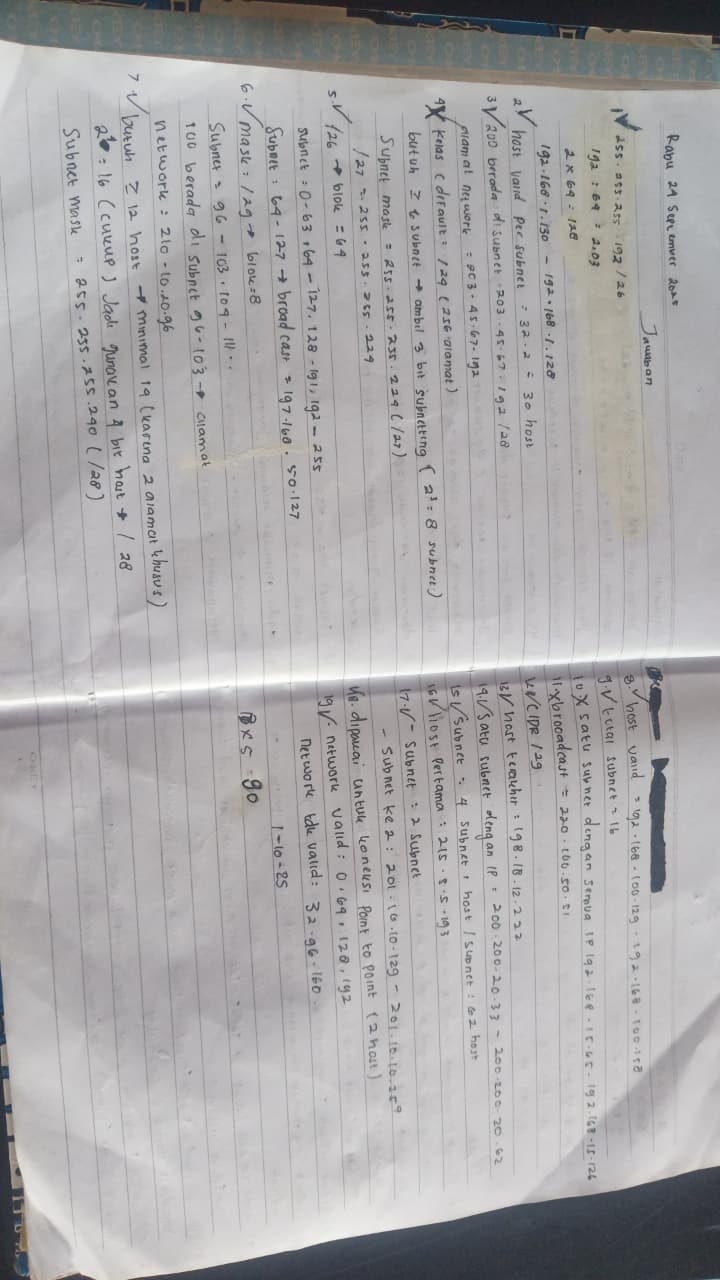 Rabu 24 September 2025
Jawaban
1 255.255.255.192/26
192 : 64 = 2.03
2 x 64 = 128
192.168.1.130 - 192.168.1.128
2 host valid per subnet = 32.2 = 30 host
3 200 berada di subnet 203.45.67.192/28
alamat network = 203.45.67.192
4 X Kelas C default = /24 (256 alamat)
butuh ≥ 6 subnet → ambil 3 bit subnetting (2³ = 8 subnet)
Subnet mask = 255.255.255.224 (/27)
/27 = 255.255.255.224
5. /26 → blok = 64
subnet = 0-63, 64-127, 128-191, 192-255
Subnet = 64-127 → broadcast = 197.168.50.127
6. mask = /29 → blok = 8
Subnet = 96-103, 104-111...
100 berada di subnet 96-103 → alamat
network = 210.10.20.96
7 butuh ≥ 12 host → minimal 14 (karena 2 alamat khusus)
= 16 (cukup) Jadi gunakan 4 bit host → /28
Subnet mask = 255.255.255.240 (/28)
8. host valid = 192.168.100.129 - 192.168.100.158
9. total subnet = 16
10 X satu subnet dengan semua IP 192.168.15.65 - 192.168.15.126
11 X brooadcast = 220.100.50.51
CIDR /29
13 host terakhir = 198.18.12.222
14. Satu subnet dengan IP = 200.200.20.33 - 200.200.20.62
15 Subnet = 4 subnet, host / subnet = 62 host
16 host Pertama = 215.5.5.193
17. - Subnet = 2 subnet
- Subnet ke 2 : 201.10.10.129 - 201.10.10.254
18. dipakai untuk koneksi point to point (2 host)
19 . network valid : 0, 64, 128, 192
network tdk valid : 32.96.160.
x 5 = 90
1-10-25